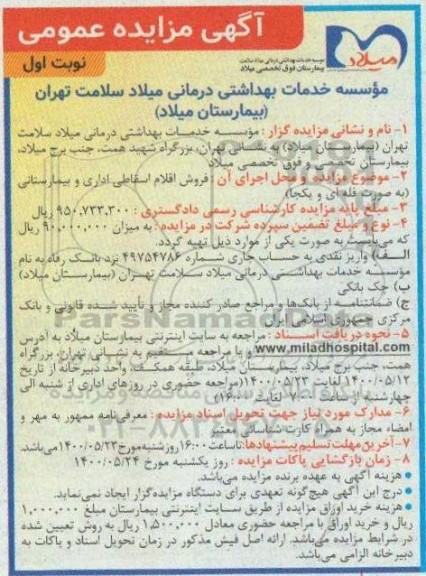 آگهی مزایده عمومی
نوبت اول
میلاد
موسسه خدمات بهداشتی درمانی میلاد سلامت
بیمارستان فوق تخصصی میلاد
مؤسسه خدمات بهداشتی درمانی میلاد سلامت تهران
(بیمارستان میلاد)
۱- نام و نشانی مزایده گزار : مؤسسه خدمات بهداشتی درمانی میلاد سلامت
تهران (بیمارستان میلاد) به نشانی تهران، بزرگراه شهید همت، جنب برج میلاد،
بیمارستان تخصصی و فوق تخصصی میلاد
۲- موضوع مزایده و محل اجرای آن : فروش اقلام اسقاطی اداری و بیمارستانی
(به صورت فله ای و یکجا)
۳- مبلغ پایه مزایده کارشناسی رسمی دادگستری : ۹۵۰,۷۳۳,۳۰۰ ریال
۴- نوع و مبلغ تضمین سپرده شرکت در مزایده : به میزان ۹۰,۰۰۰,۰۰۰ ریال
که می‌بایست به صورت یکی از موارد ذیل تهیه گردد.
الف) واریز نقدی به حساب جاری شماره ۴۹۷۵۴۷۸۶ نزد بانک رفاه به نام
مؤسسه خدمات بهداشتی درمانی میلاد سلامت تهران (بیمارستان میلاد)
ب) چک بانکی
ج) ضمانتنامه از بانک‌ها و مراجع صادر کننده مجاز و تأیید شده قانونی و بانک
مرکزی جمهوری اسلامی ایران
۵- نحوه دریافت اسناد : مراجعه به سایت اینترنتی بیمارستان میلاد به آدرس
www.miladhospital.com و یا مراجعه مستقیم به نشانی تهران، بزرگراه
همت، جنب برج میلاد، بیمارستان میلاد، طبقه همکف، واحد دبیرخانه از تاریخ
۱۴۰۰/۰۵/۱۲ لغایت ۱۴۰۰/۰۵/۲۳ (مراجعه حضوری در روزهای اداری از شنبه الی
چهارشنبه از ساعت ۷:۰۰ لغایت ۱۶:۰۰)
۶- مدارک مورد نیاز جهت تحویل اسناد مزایده : معرفی‌نامه ممهور به مهر و
امضاء مجاز به همراه کارت شناسائی معتبر
۷- آخرین مهلت تسلیم پیشنهادها: تا ساعت ۱۶:۰۰ روز شنبه مورخ ۱۴۰۰/۰۵/۲۳ می‌باشد.
۸- زمان بازگشایی پاکات مزایده : روز یکشنبه مورخ ۱۴۰۰/۰۵/۲۴
• هزینه آگهی به عهده برنده مزایده می‌باشد.
• درج این آگهی هیچ‌گونه تعهدی برای دستگاه مزایده‌گزار ایجاد نمی‌نماید.
• هزینه خرید اوراق مزایده از طریق سایت اینترنتی بیمارستان مبلغ ۱,۰۰۰,۰۰۰
ریال و خرید اوراق با مراجعه حضوری معادل ۱,۵۰۰,۰۰۰ ریال به روش تعیین شده
در شرایط مزایده می‌باشد. ارائه اصل فیش مذکور در زمان تحویل اسناد و پاکات به
دبیرخانه الزامی می‌باشد.
ParsNamadData